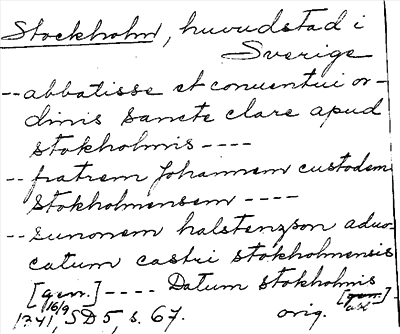 Stockholm, huvudstad i
Sverige
-- abbatisse et conuentui or-
dinis sancte clare apud
stokholmis ----
-- fratrem Johannem custodem
Stokholmensem ----
-- sunonem halstenzson aduo-
catum castri stokholmensis
[gen.] ---- Datum stokholmis
16/9 [gen.]
1341, SD 5, s. 67. orig.